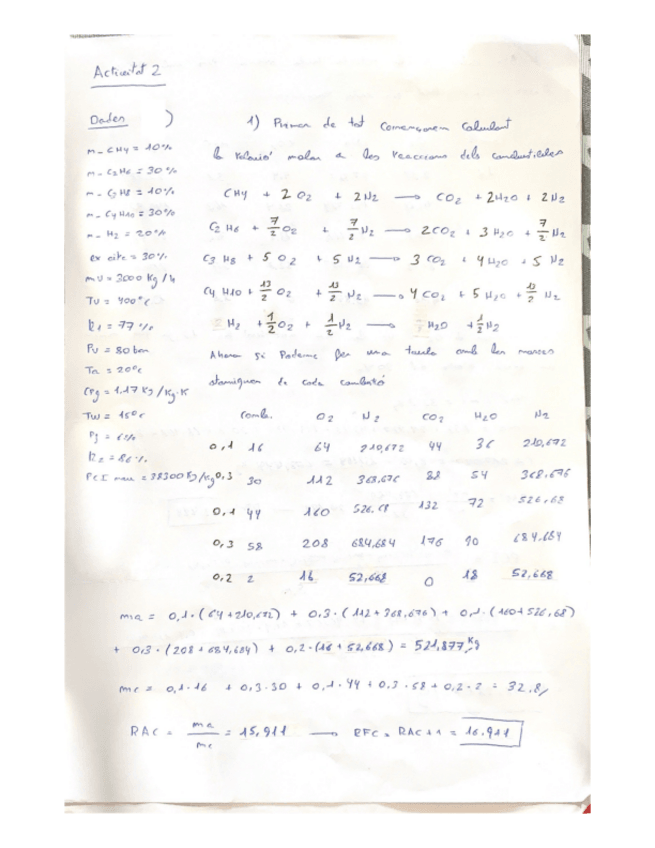 Activitat 2
Dades
m_ CH4 = 10%
m_ C2H6 = 30%
m_ C3H8 = 10%
m_ C4H10 = 30%
m_ H2 = 20%
ex aire = 30%
mv = 3000 Kg/h
Tv = 400°c
R1 = 77%
Pv = 80 bar
Ta = 20°c
CPg = 1.17 KJ/Kg·K
Tw = 15°c
Pj = 6%
R2 = 86%
PCI = 38300 KJ/Kg
1) Primer de tot començarem calculant
la relació molar a les reaccions dels combustibles
CH4 + 2 O2 + 2 N2 → CO2 + 2H2O + 2 N2
C2 H6 + 7/2 O2 + 7/2 N2 → 2CO2 + 3 H2O + 7/2 N2
C3 H8 + 5 O2 + 5 N2 → 3 CO2 + 4 H2O + 5 N2
C4 H10 + 13/2 O2 + 13/2 N2 → 4 CO2 + 5 H2O + 13/2 N2
H2 + 1/2 O2 + 1/2 N2 → H2O + 1/2 N2
Ahora si Podem fer una taula amb les masses
de cada
Comb. O2 N2 CO2 H2O N2
0,1 16 64 210,672 44 36 210,672
0,3 30 112 368,676 88 54 368,676
0,1 44 160 526,68 132 72 526,68
0,3 58 208 684,684 176 90 684,684
0,2 2 16 52,668 0 18 52,668
ma = 0,1·(64+210,672) + 0,3·(112+368,676) + 0,1·(160+526,68)
+ 0,3·(208+684,684) + 0,2·(16+52,668) = 521,877 Kg
mc = 0,1·16 + 0,3·30 + 0,1·44 + 0,3·58 + 0,2·2 = 32,8
RAC = ma/mc = 15,911 → RFC = RAC+1 = 16,911